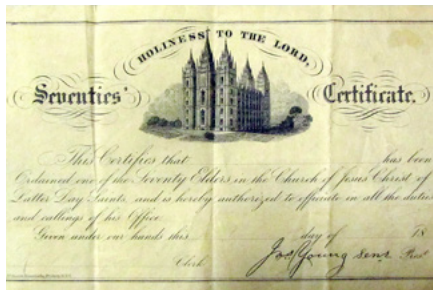 HOLINESS TO THE LORD,
Seventies' Certificate.
This Certifies that has been
Ordained one of the Seventy Elders in the Church of Jesus Christ of
Latter Day Saints, and is hereby authorized to officiate in all the duties
and callings of his Office.
Given under our hands this day of 18
Clerk. Jos. Young Senr Prest